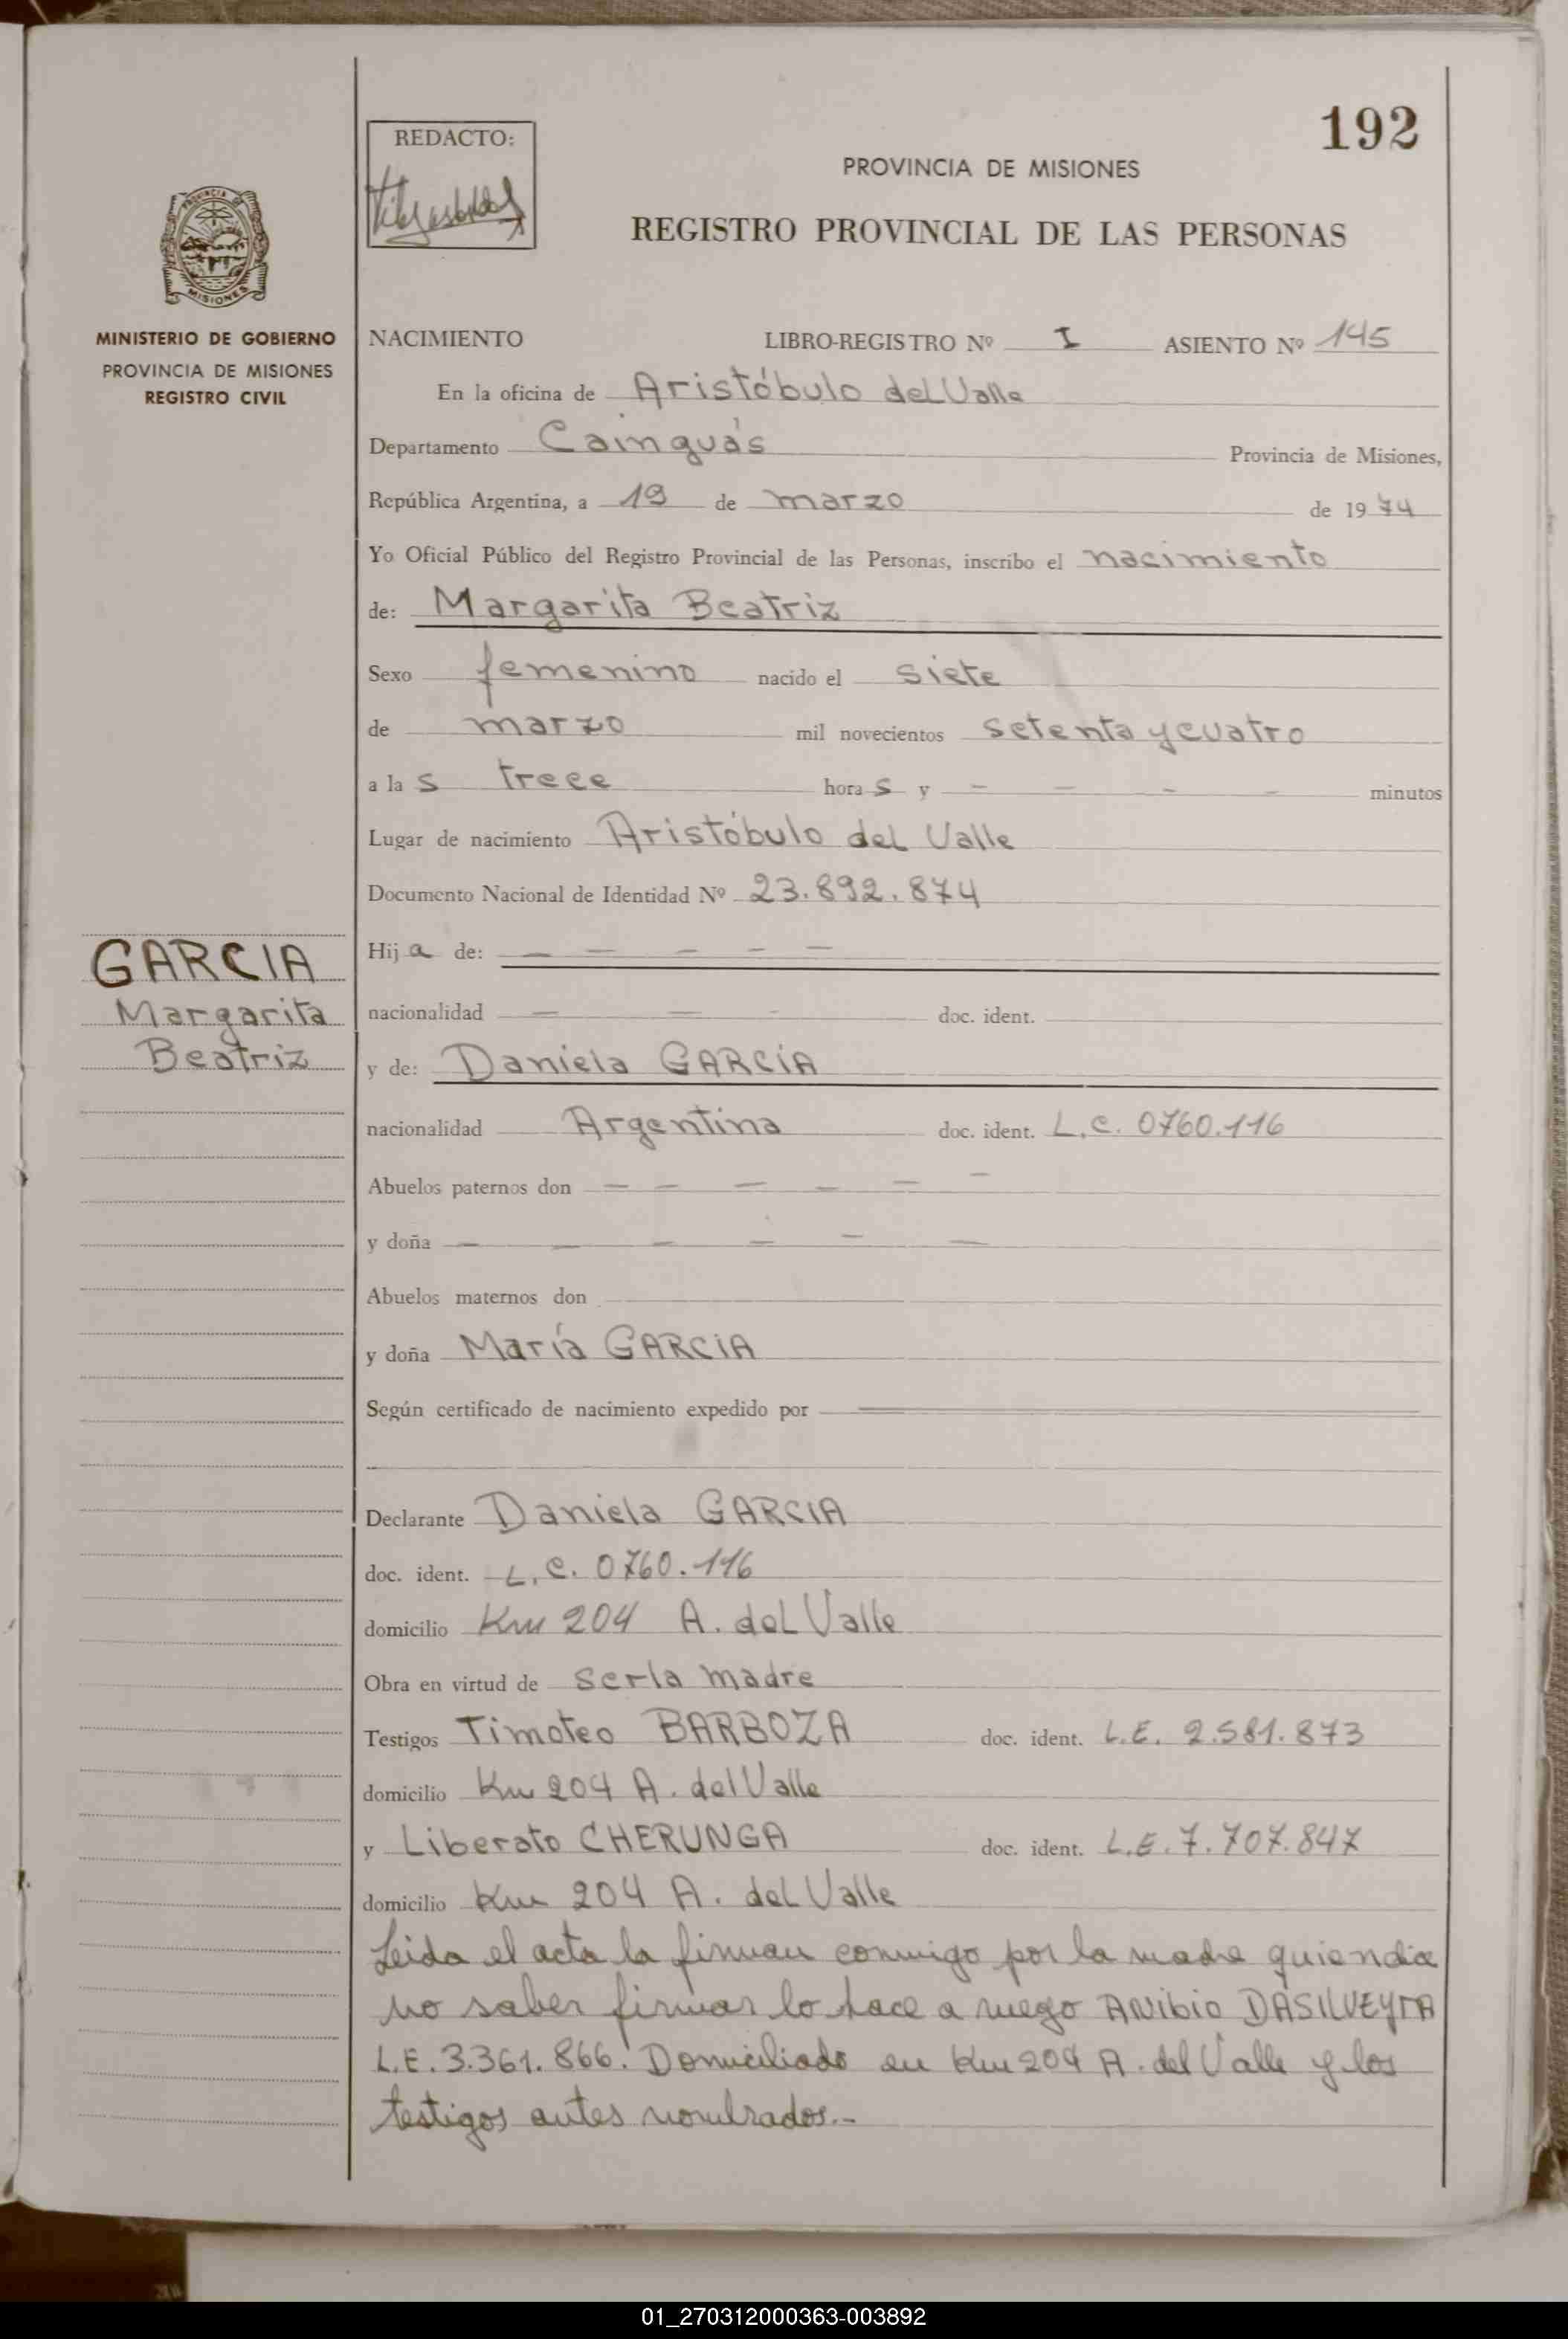 192
REDACTO:
PROVINCIA DE MISIONES
REGISTRO PROVINCIAL DE LAS PERSONAS
PROVINCIA DE
MISIONES
MINISTERIO DE GOBIERNO
PROVINCIA DE MISIONES
REGISTRO CIVIL
NACIMIENTO LIBRO-REGISTRO Nº I ASIENTO Nº 145
En la oficina de Aristóbulo del Valle
Departamento Cainguás Provincia de Misiones,
República Argentina, a 19 de marzo de 1974
Yo Oficial Público del Registro Provincial de las Personas, inscribo el nacimiento
de: Margarita Beatriz
Sexo femenino nacido el siete
de marzo mil novecientos setenta y cuatro
a la s trece hora s y - - - - minutos
Lugar de nacimiento Aristóbulo del Valle
Documento Nacional de Identidad Nº 23.892.874
GARCIA
Margarita
Beatriz
Hij a de: — — — — —
nacionalidad — — - doc. ident.
y de: Daniela GARCÍA
nacionalidad Argentina doc. ident. L.C. 0760.116
Abuelos paternos don — — — — — —
y doña — — — — — —
Abuelos maternos don
y doña María GARCIA
Según certificado de nacimiento expedido por
Declarante Daniela GARCIA
doc. ident. L.C. 0760.116
domicilio Km 204 A. del Valle
Obra en virtud de ser la madre
Testigos Timoteo BARBOZA doc. ident. L.E. 2.581.873
domicilio Km 204 A. del Valle
y Liberato CHERUNGA doc. ident. L.E. 7.707.847
domicilio Km 204 A. del Valle
Leida el acta la firman conmigo por la madre quien dice
no saber firmar lo hace a ruego ANibio DASILVEYRA
L.E. 3.361.866. Domiciliado en Km 204 A. del Valle y los
testigos antes nombrados.-
01_270312000363-003892